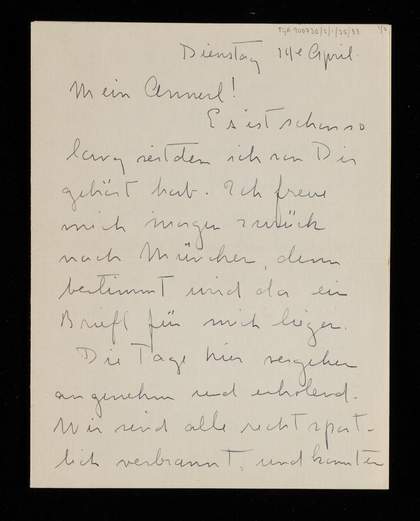 TGA 9007/2/1/35/33 1/2
Dienstag 14e April.
Mein Annerl!
Es ist schon so
lang seitdem ich von Dir
gehört hab. Ich freue
mich morgen zurück
nach München, denn
bestimmt wird da ein
Briefl für mich liegen.
Die Tage hier vergehen
angenehm und erholend.
Wir sind alle recht sport-
lich verbrannt, und konnten